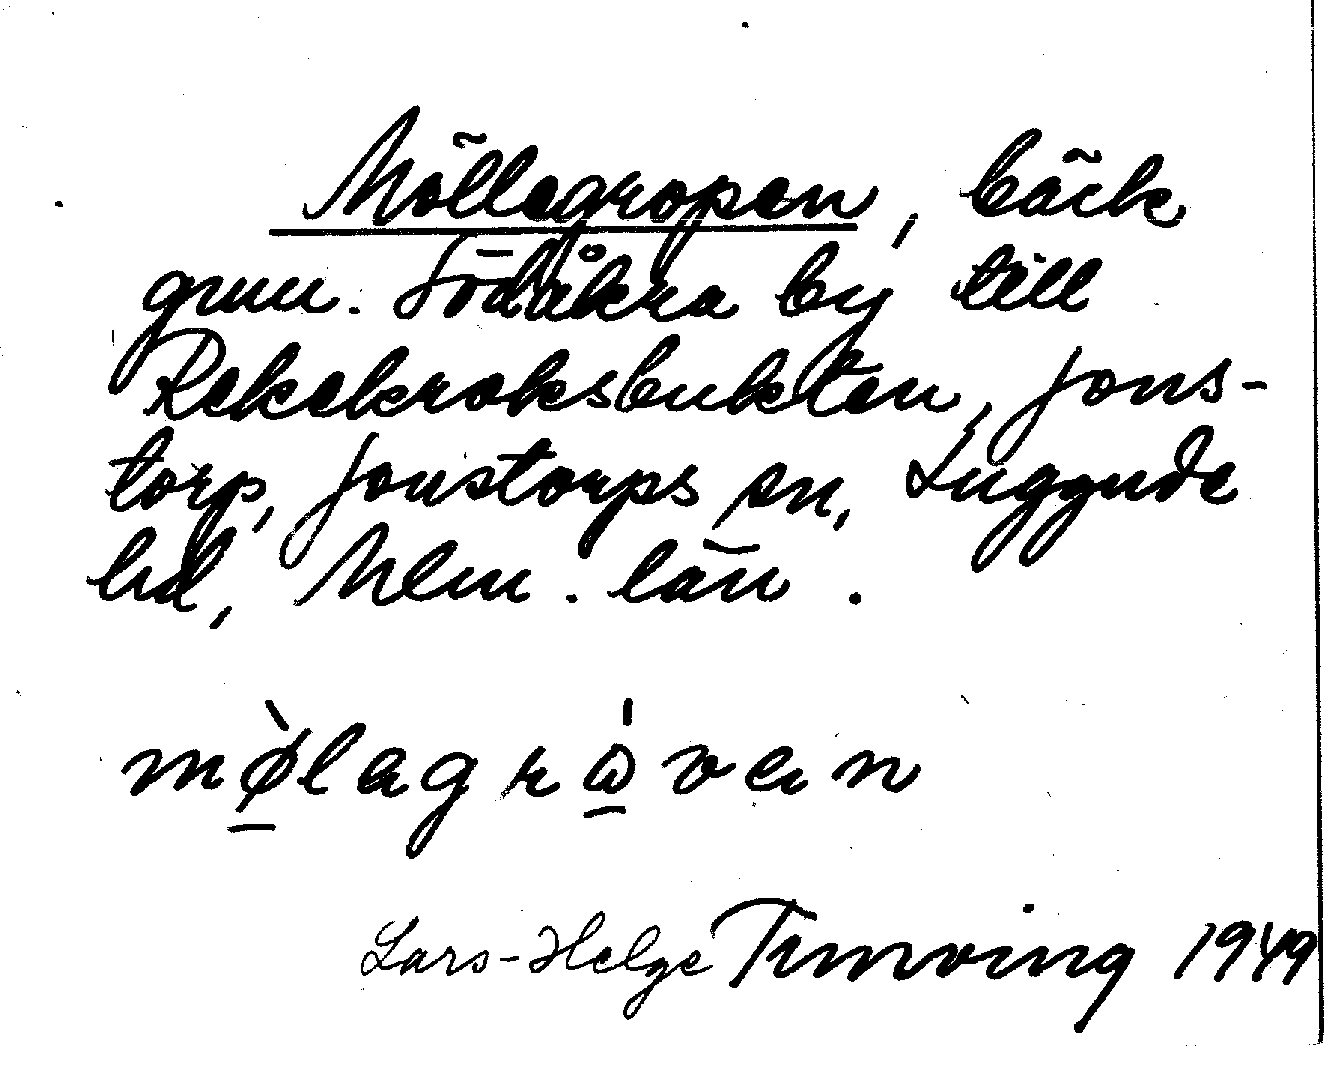 Möllegropen, bäck
gnm. Södåkra by till
Rekekroksbukten, Jons-
torp, Jonstorps sn, Luggude
hd, Mlm. län.
mø̱̀lagrώ̱ven
Lars-Helge Trulsson 1949